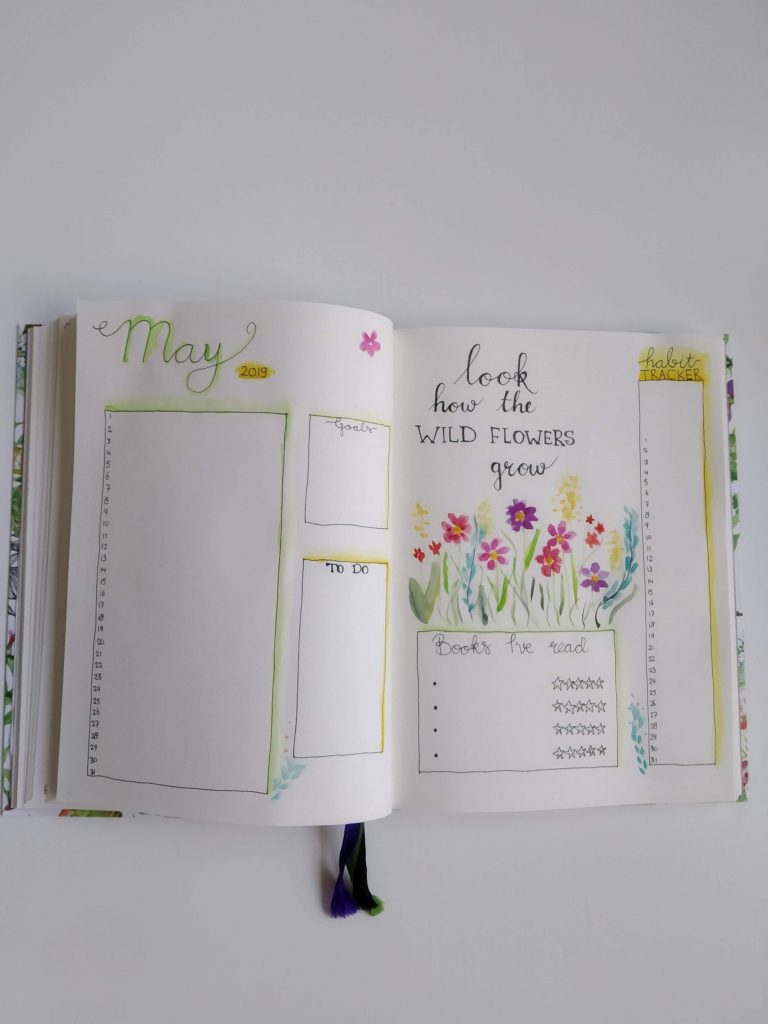 May
2019
1
2
3
4
5
6
7
8
9
10
11
12
13
14
15
16
17
18
19
20
21
22
23
24
25
26
27
28
29
30
31
Goals
TO DO
look
how the
WILD FLOWERS
grow
Books I've read
habit
TRACKER
1
2
3
4
5
6
7
8
9
10
11
12
13
14
15
16
17
18
19
20
21
22
23
24
25
26
27
28
29
30
31